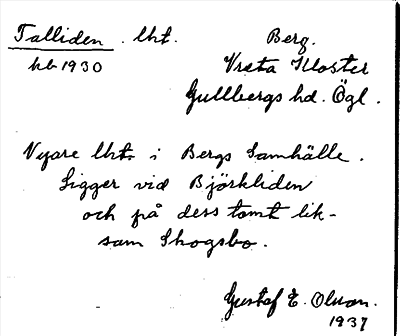 Talliden. lht. Berg.
kb 1930 Vreta Kloster
Gullbergs hd. Ögl.
Nyare lht. i Bergs Samhälle.
Ligger vid Björkliden
och på dess tomt lik-
som Skogsbo.
Gustaf E. Olsson.
1937